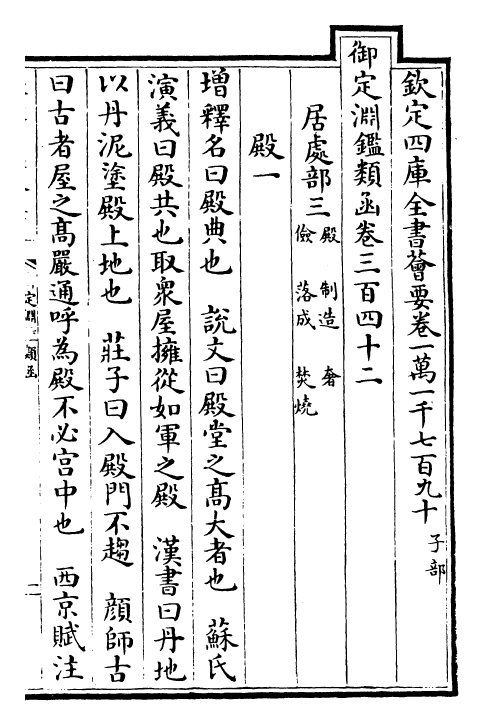 欽定四庫全書薈要卷一萬一千七百九十 子部
御定淵鑑類函卷三百四十二
居處部三 殿 制造 奢
儉 落成 焚燒
殿一
增釋名曰殿典也 說文曰殿堂之高大者也 蘇氏
演義曰殿共也取衆屋擁從如軍之殿 漢書曰丹地
以丹泥塗殿上地也 莊子曰入殿門不趨 顔師古
曰古者屋之高嚴通呼為殿不必宮中也 西京賦注